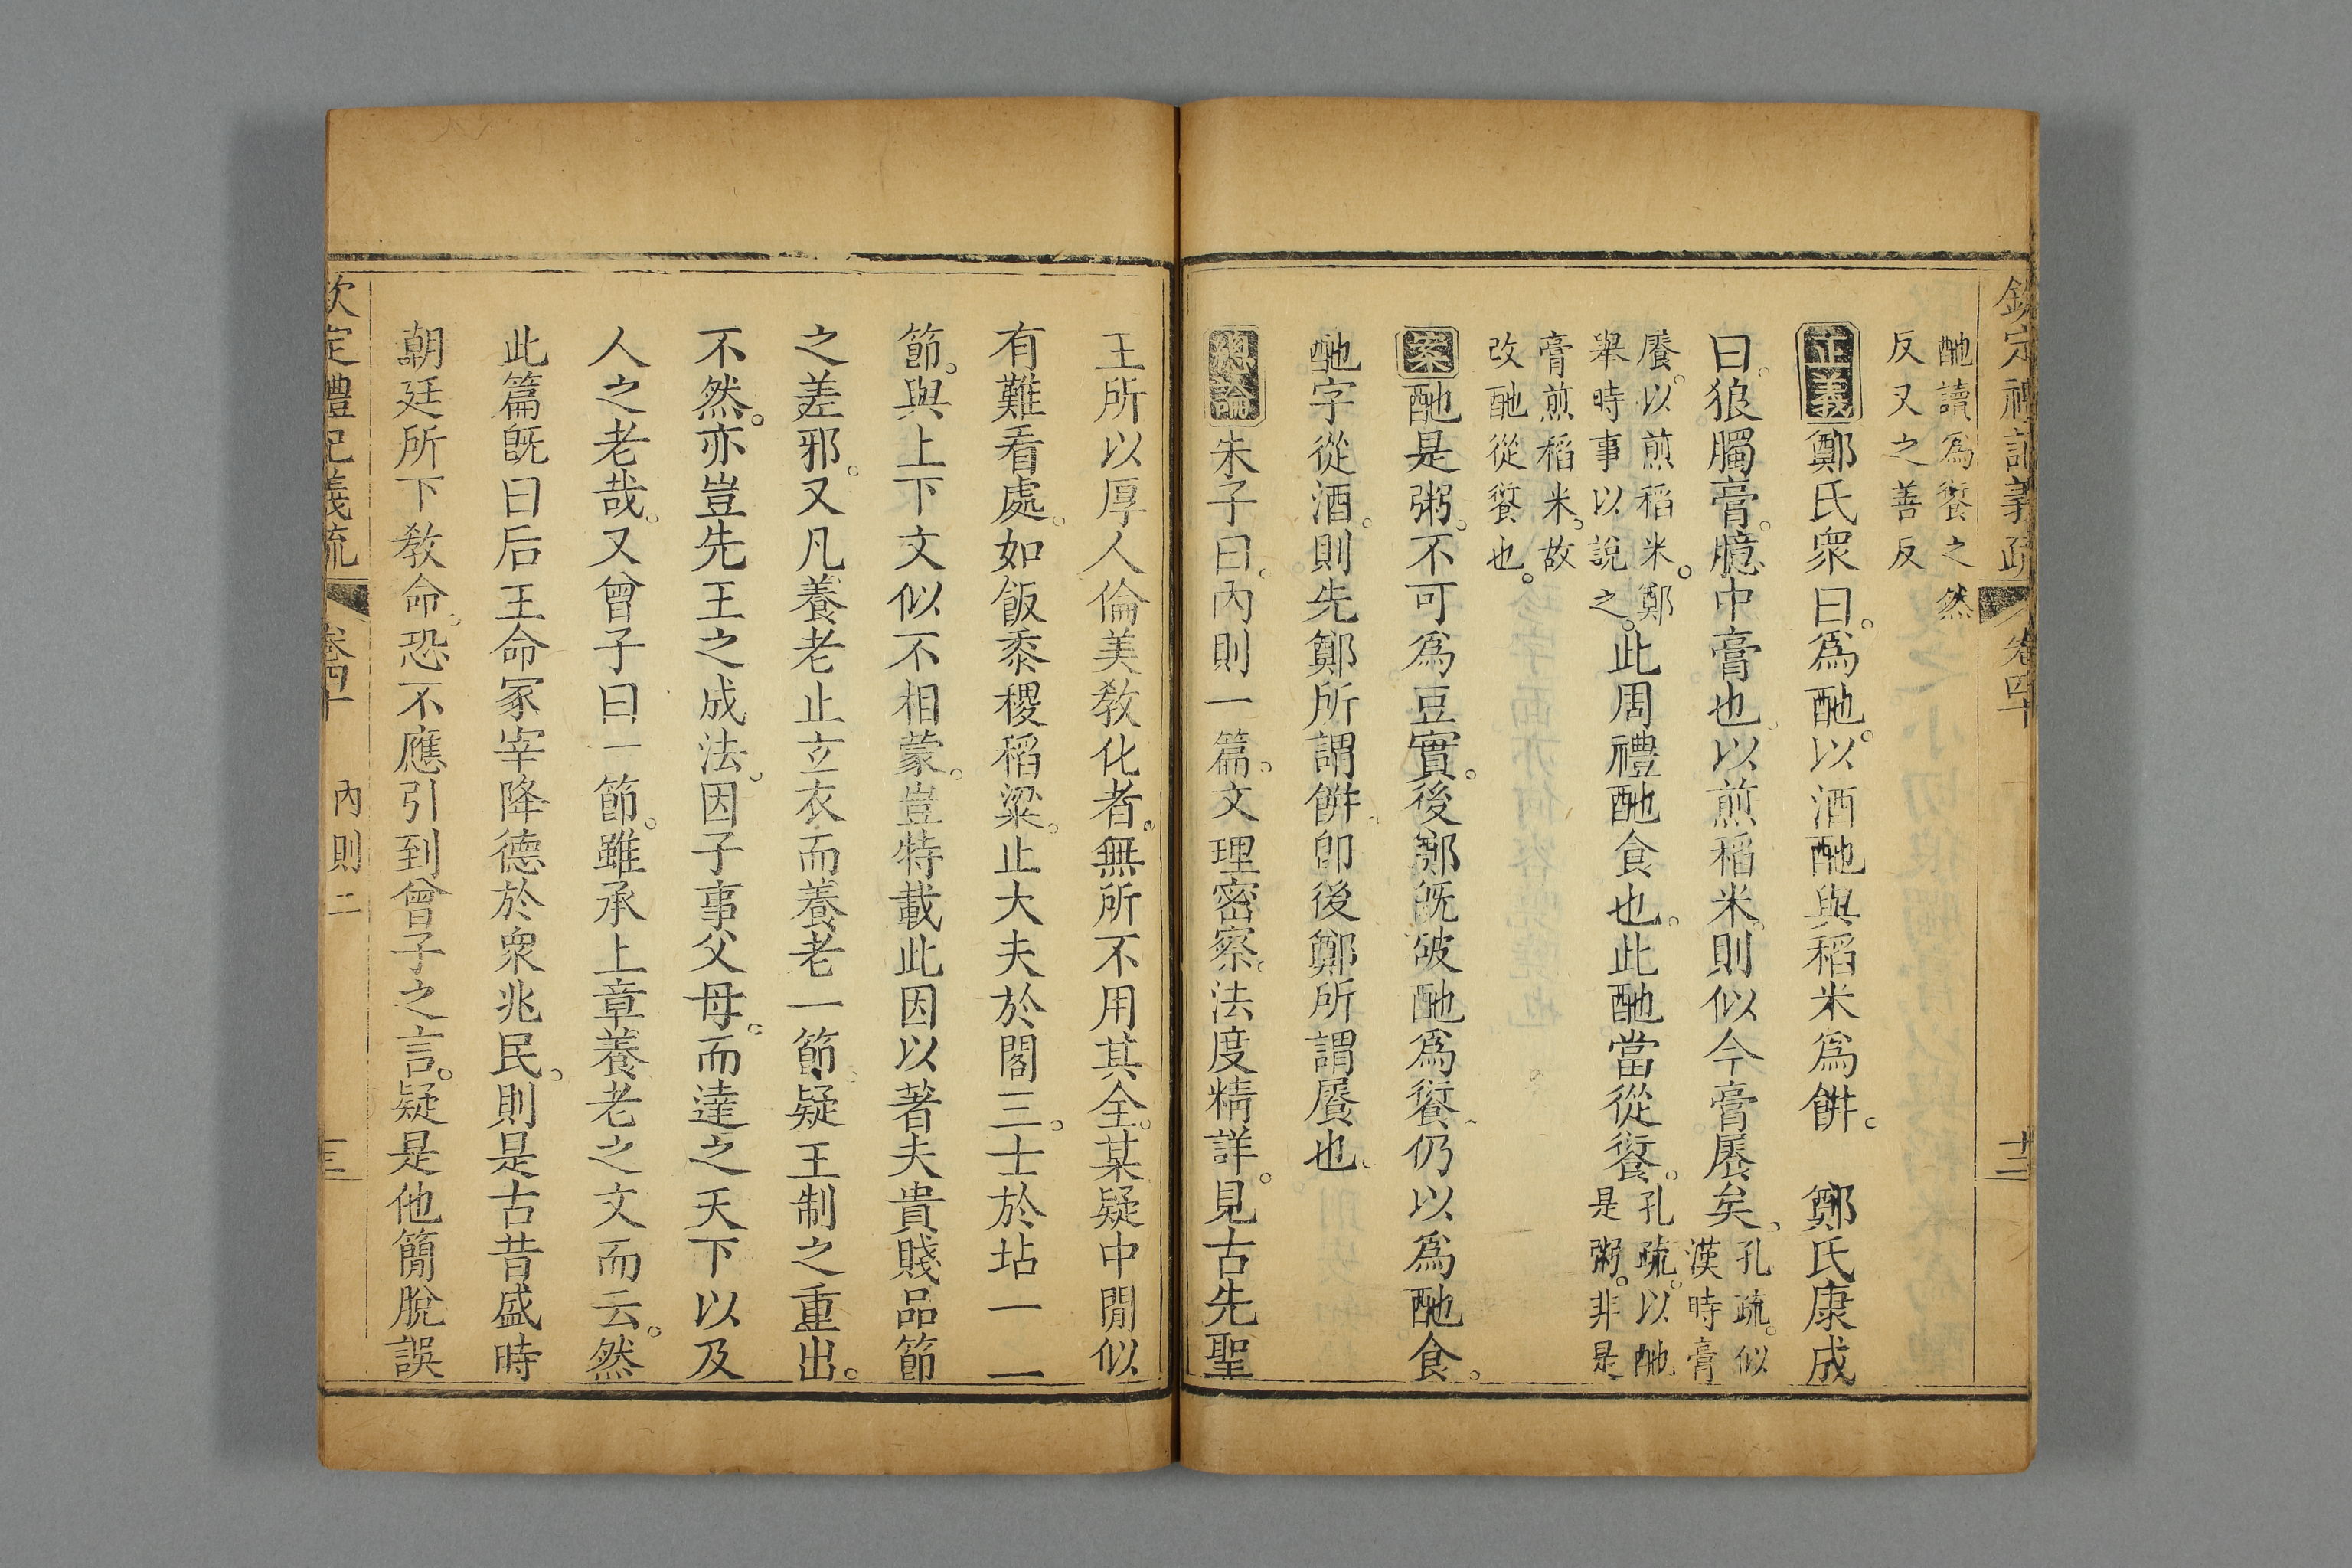 欽定禮記義疏 卷四十 十三
酏讀爲餰之然
反又之善反
正義鄭氏衆曰。爲酏。以酒酏與稻米爲餠。 鄭氏康成
曰。狼臅膏。臆中膏也。以煎稻米。則似今膏𩞍矣。孔疏。似漢時膏
𩞍。以煎稻米。鄭擧時事以說之。此周禮酏食也。此酏當從餰。孔疏。以酏是粥。非是
膏煎稻米。故
改酏從餰也。
案酏是粥。不可爲豆實。後鄭旣破酏爲餰。仍以爲酏食。
酏字從酒。則先鄭所謂餠。卽後鄭所謂𩞍也。
總論朱子曰。內則一篇。文理密察。法度精詳。見古先聖
王所以厚人倫美敎化者。無所不用其全。某疑中閒似
有難看處。如飯黍稷稻粱。止大夫於閣三。士於坫一一
節。與上下文似不相蒙。豈特載此因以著夫貴賤品節
之差邪。又凡養老止立衣而養老一節。疑王制之重出。
不然。亦豈先王之成法。因子事父母。而達之天下以及
人之老哉。又曾子曰一節。雖承上章養老之文而云。然
此篇旣曰后王命冢宰降德於衆兆民。則是古昔盛時
朝廷所下敎命。恐不應引到曾子之言。疑是他簡脫誤
欽定禮記義疏 卷四十 內則二 十三